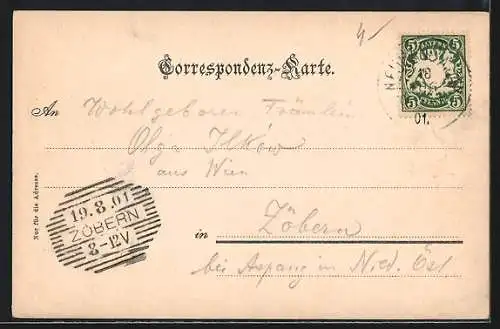 4/
BAYERN
5 5
5 PFENNIG 5
NEU
18
01.
Correspondenz-Karte.
An Wohlgeboren Fräulein
Olga Ilköw
aus Wien
Nur für die Adresse.
19.8.01
ZÖBERN
8-12V
in Zöbern
bei Aspang in Nied. Öst